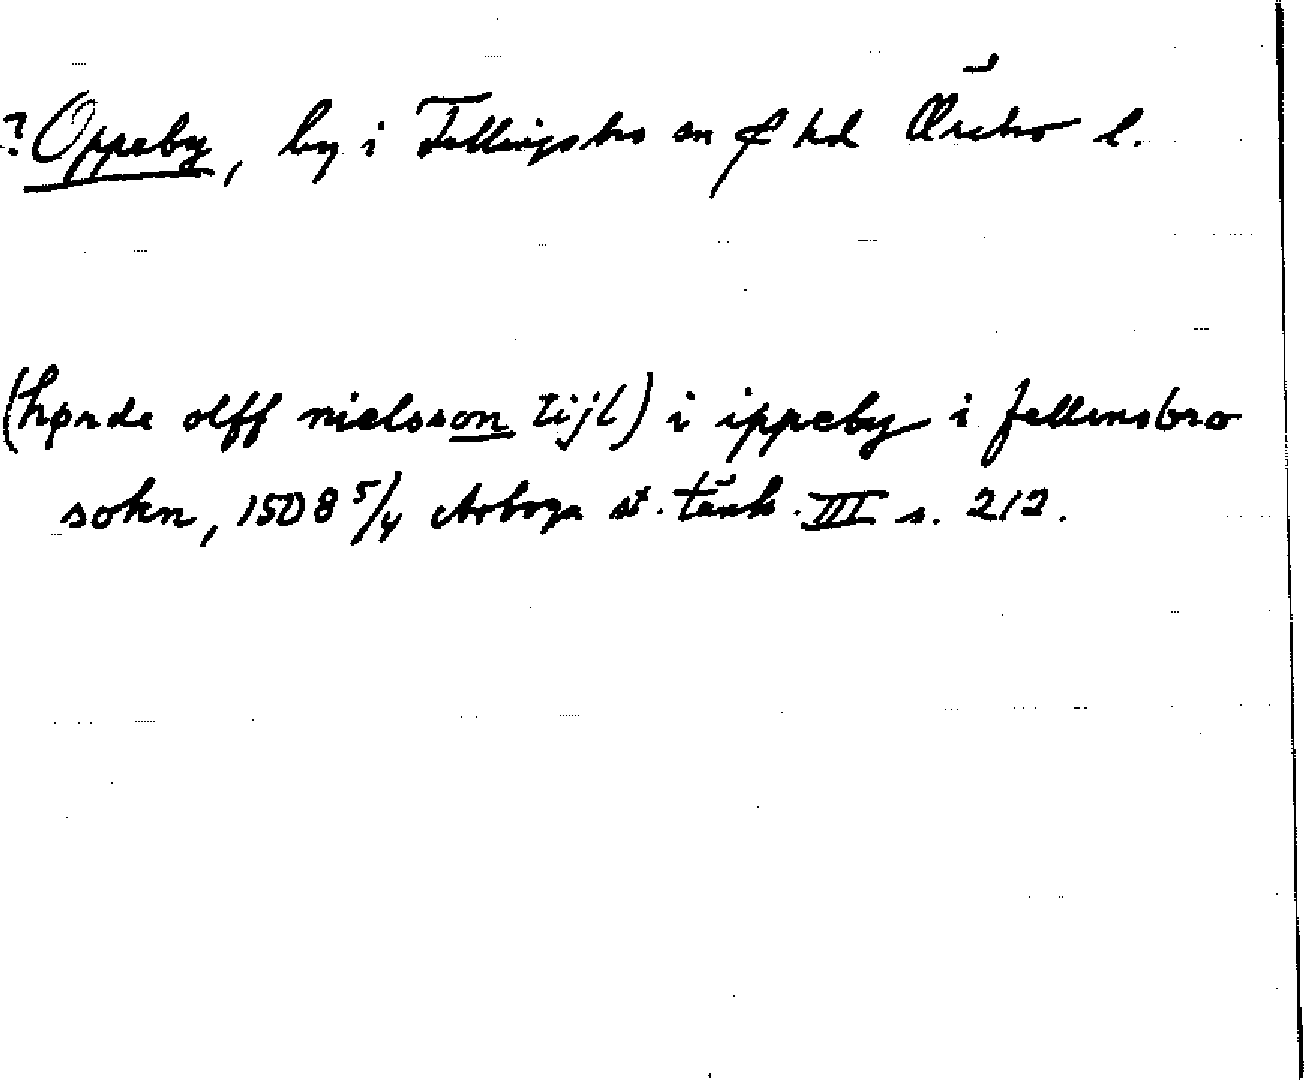 ? Oppeby, by i Fellingsbro sn f hd Örebro l.
(hørde olff nielsson tijl) i ippeby i fellinsbro
sokn, 1508 5/4 Arboga st. tänk. III s. 212.